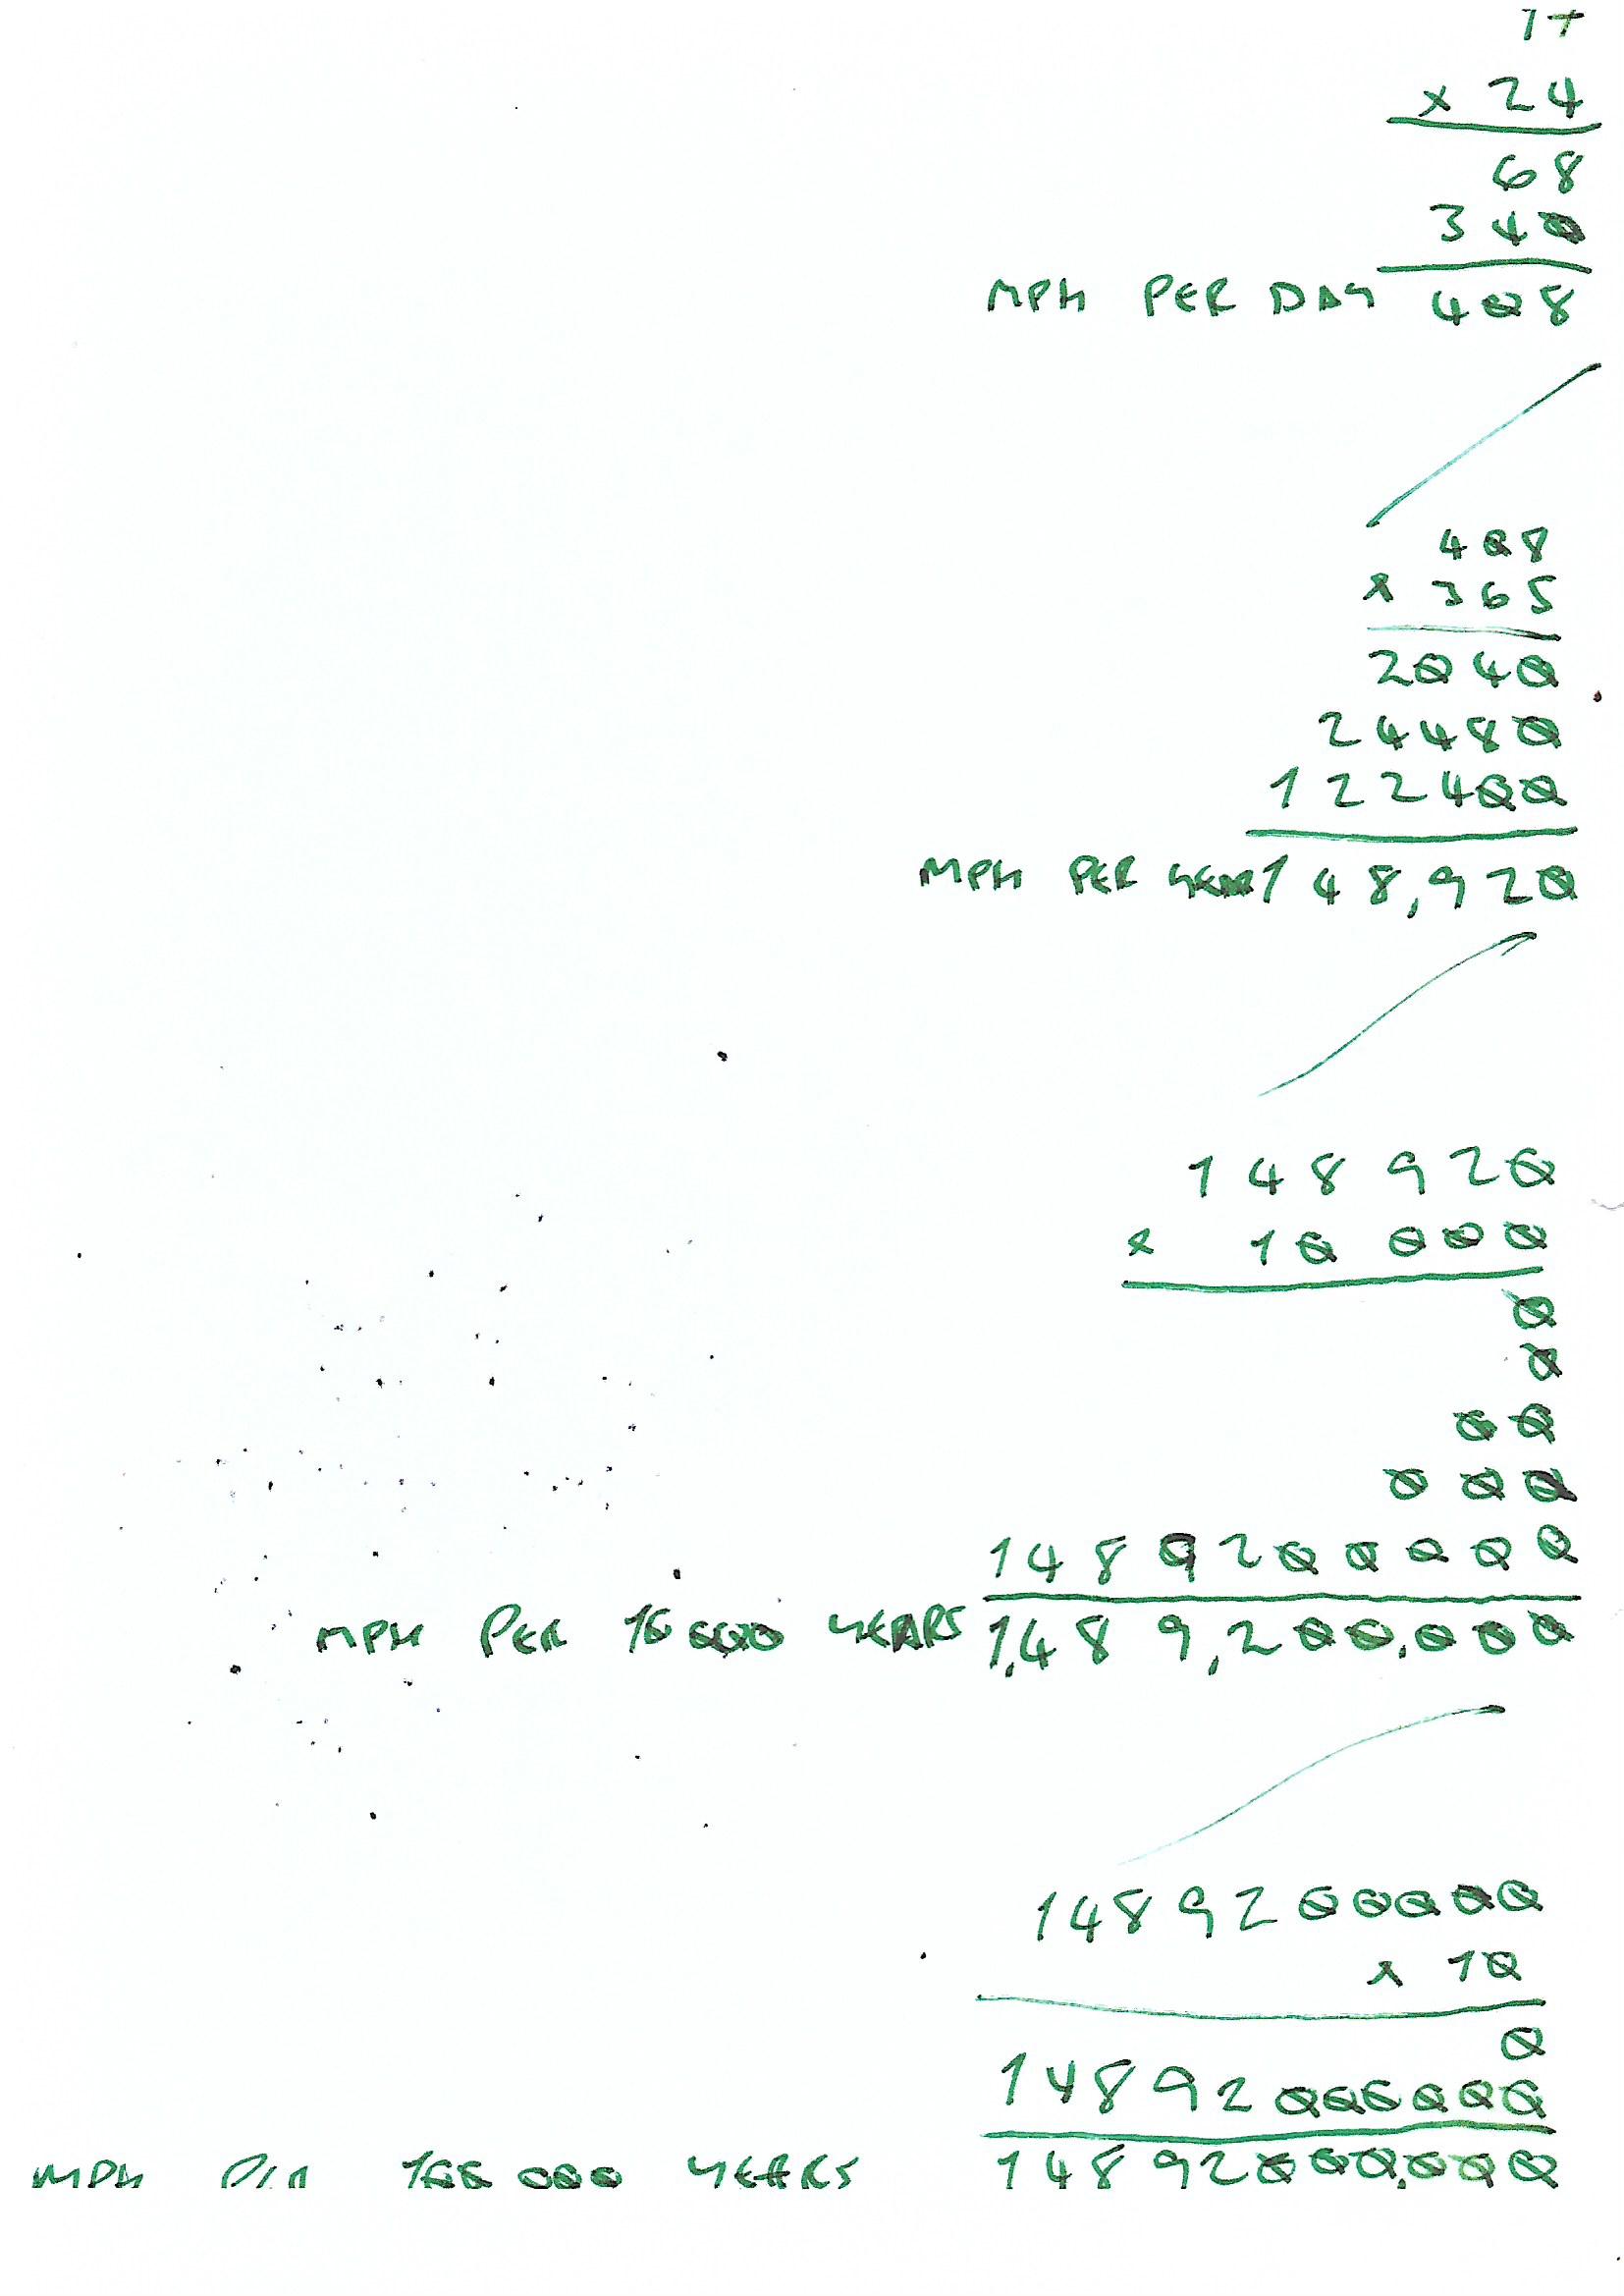 17
x 24
68
340
MPH PER DAY 408
408
x 365
2040
24480
122400
MPH PER YEAR 148,920
148920
x 10 000
0
0
00
000
1489200000
MPH PER 10 000 YEARS 1,489,200,000
1489200000
x 10
0
14892000000
MPH PER 100 000 YEARS 14892000,000